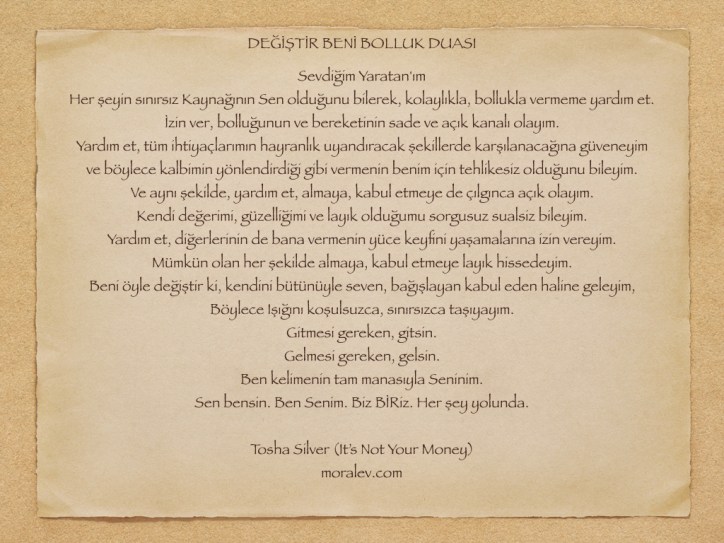 DEĞİŞTİR BENİ BOLLUK DUASI
Sevdiğim Yaratan'ım
Her şeyin sınırsız Kaynağının Sen olduğunu bilerek, kolaylıkla, bollukla vermeme yardım et.
İzin ver, bolluğunun ve bereketinin sade ve açık kanalı olayım.
Yardım et, tüm ihtiyaçlarımın hayranlık uyandıracak şekillerde karşılanacağına güveneyim
ve böylece kalbimin yönlendirdiği gibi vermenin benim için tehlikesiz olduğunu bileyim.
Ve aynı şekilde, yardım et, almaya, kabul etmeye de çılgınca açık olayım.
Kendi değerimi, güzelliğimi ve layık olduğumu sorgusuz sualsiz bileyim.
Yardım et, diğerlerinin de bana vermenin yüce keyfini yaşamalarına izin vereyim.
Mümkün olan her şekilde almaya, kabul etmeye layık hissedeyim.
Beni öyle değiştir ki, kendini bütünüyle seven, bağışlayan kabul eden haline geleyim,
Böylece Işığını koşulsuzca, sınırsızca taşıyayım.
Gitmesi gereken, gitsin.
Gelmesi gereken, gelsin.
Ben kelimenin tam manasıyla Seninim.
Sen bensin. Ben Senim. Biz BİRiz. Her şey yolunda.
Tosha Silver (It's Not Your Money)
moralev.com